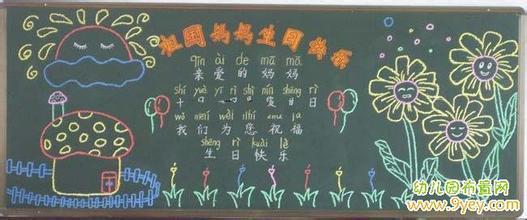 祖国妈妈生日快乐
qīn ài de mā mā
亲爱的妈妈
shí yuè yī rì shì nín shēng rì
十月一日是您生日
wǒ men wèi
我们为您祝福
shēng rì kuài lè
生日快乐
幼儿园布置网
www.9yey.com